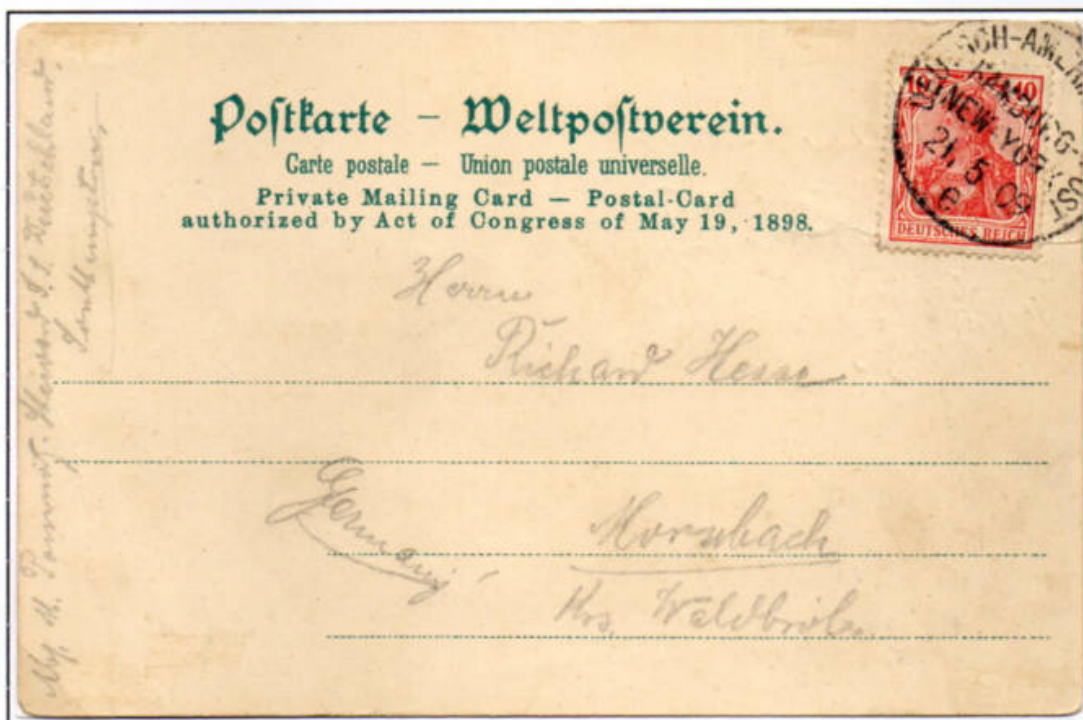 Postkarte – Weltpostverein.
Carte postale — Union postale universelle.
Private Mailing Card — Postal-Card
authorized by Act of Congress of May 19, 1898.
10
DEUTSCHES REICH
NEW YORK
21. 5 09
Herrn
Richard Hesse
Germany
Morsbach
Krs. Waldbröl.